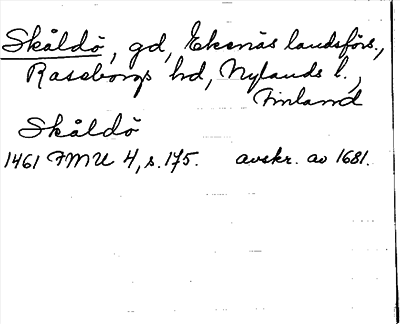 Skåldö, gd, Ekenäs landsförs.,
Raseborgs hd, Nylands l.,
Finland
Skåldö
1461 FMU 4, s. 175. avskr. av 1681.